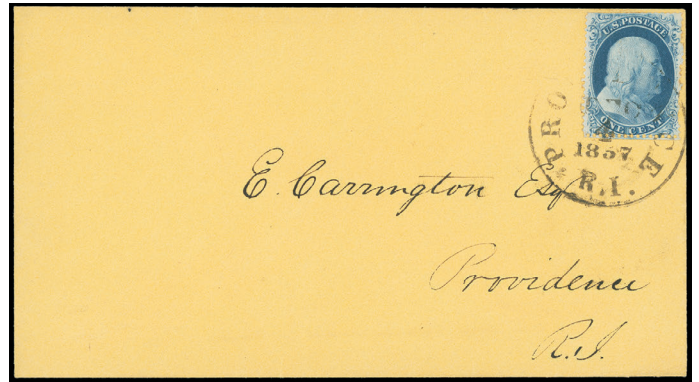 U.S. POSTAGE
ONE CENT
PRO CE
1857
R.I.
E. Carrington Esq
Providence
R.I.